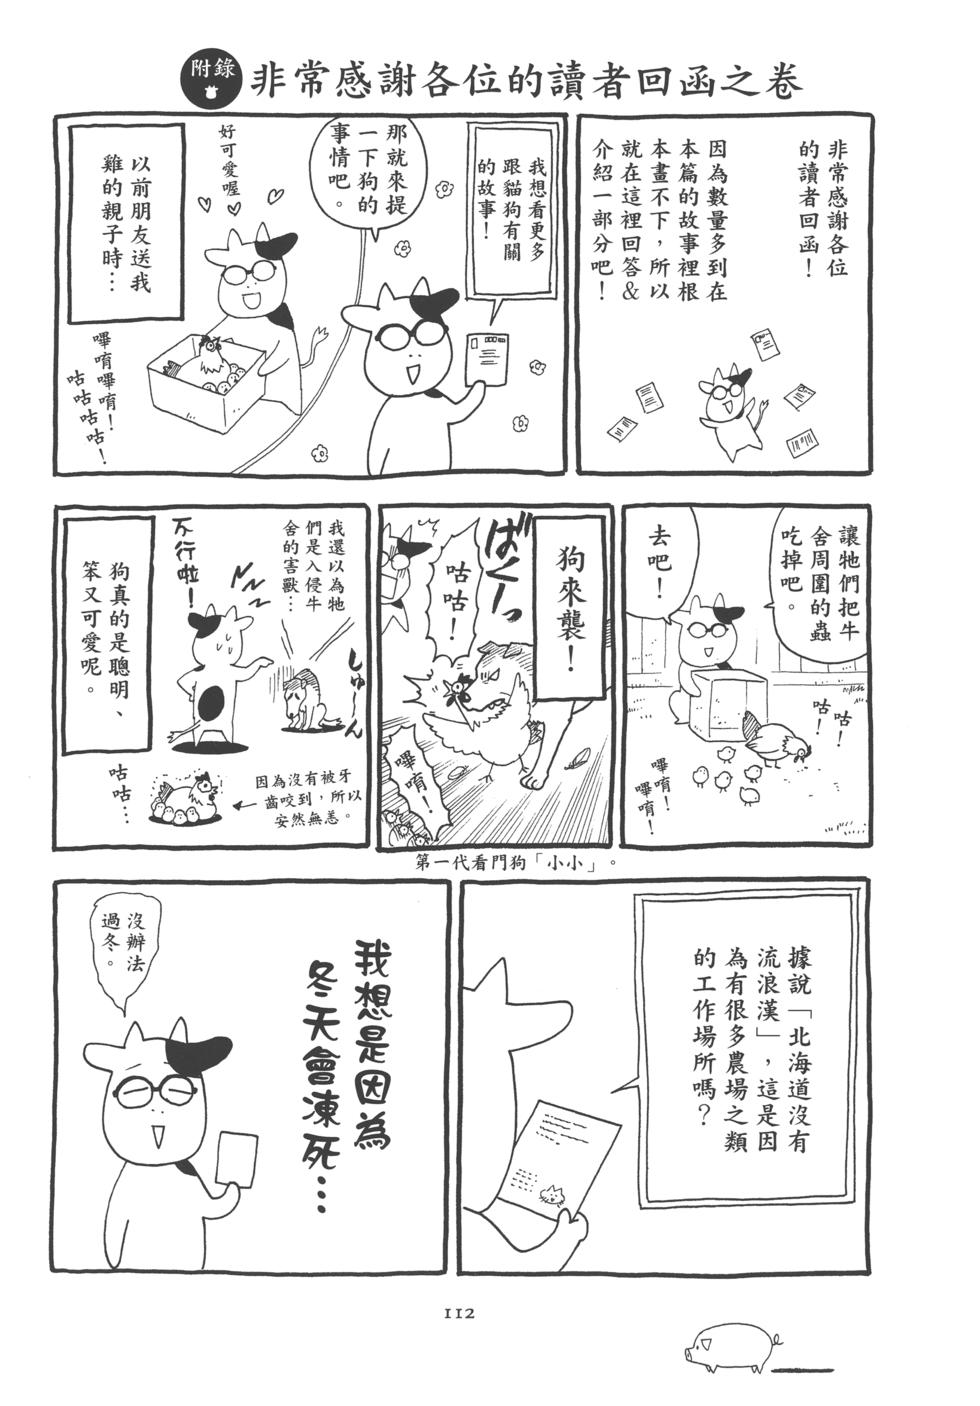 附錄
非常感謝各位的讀者回函之卷
非常感謝各位
的讀者回函！
因為數量多到在
本篇的故事裡根
本畫不下，所以
就在這裡回答&
介紹一部分吧！
我想看更多
跟貓狗有關
的故事！
那就來提
一下狗的
事情吧。
好可愛喔
以前朋友送我
雞的親子時…
嗶唷嗶唷！
咕咕咕咕！
讓牠們把牛
舍周圍的蟲
吃掉吧。
去吧！
咕！
咕！
嗶唷！
嗶唷！
狗來襲！
ばくーっ
咕咕！
嗶唷！
第一代看門狗「小小」。
我還以為牠
們是入侵牛
舍的害獸…
不行啦！
しゅーん
狗真的是聰明、
笨又可愛呢。
咕咕…
因為沒有被牙
齒咬到，所以
安然無恙。
據說「北海道沒有
流浪漢」，這是因
為有很多農場之類
的工作場所嗎？
我想是因為
冬天會凍死…
沒辦法
過冬。
112